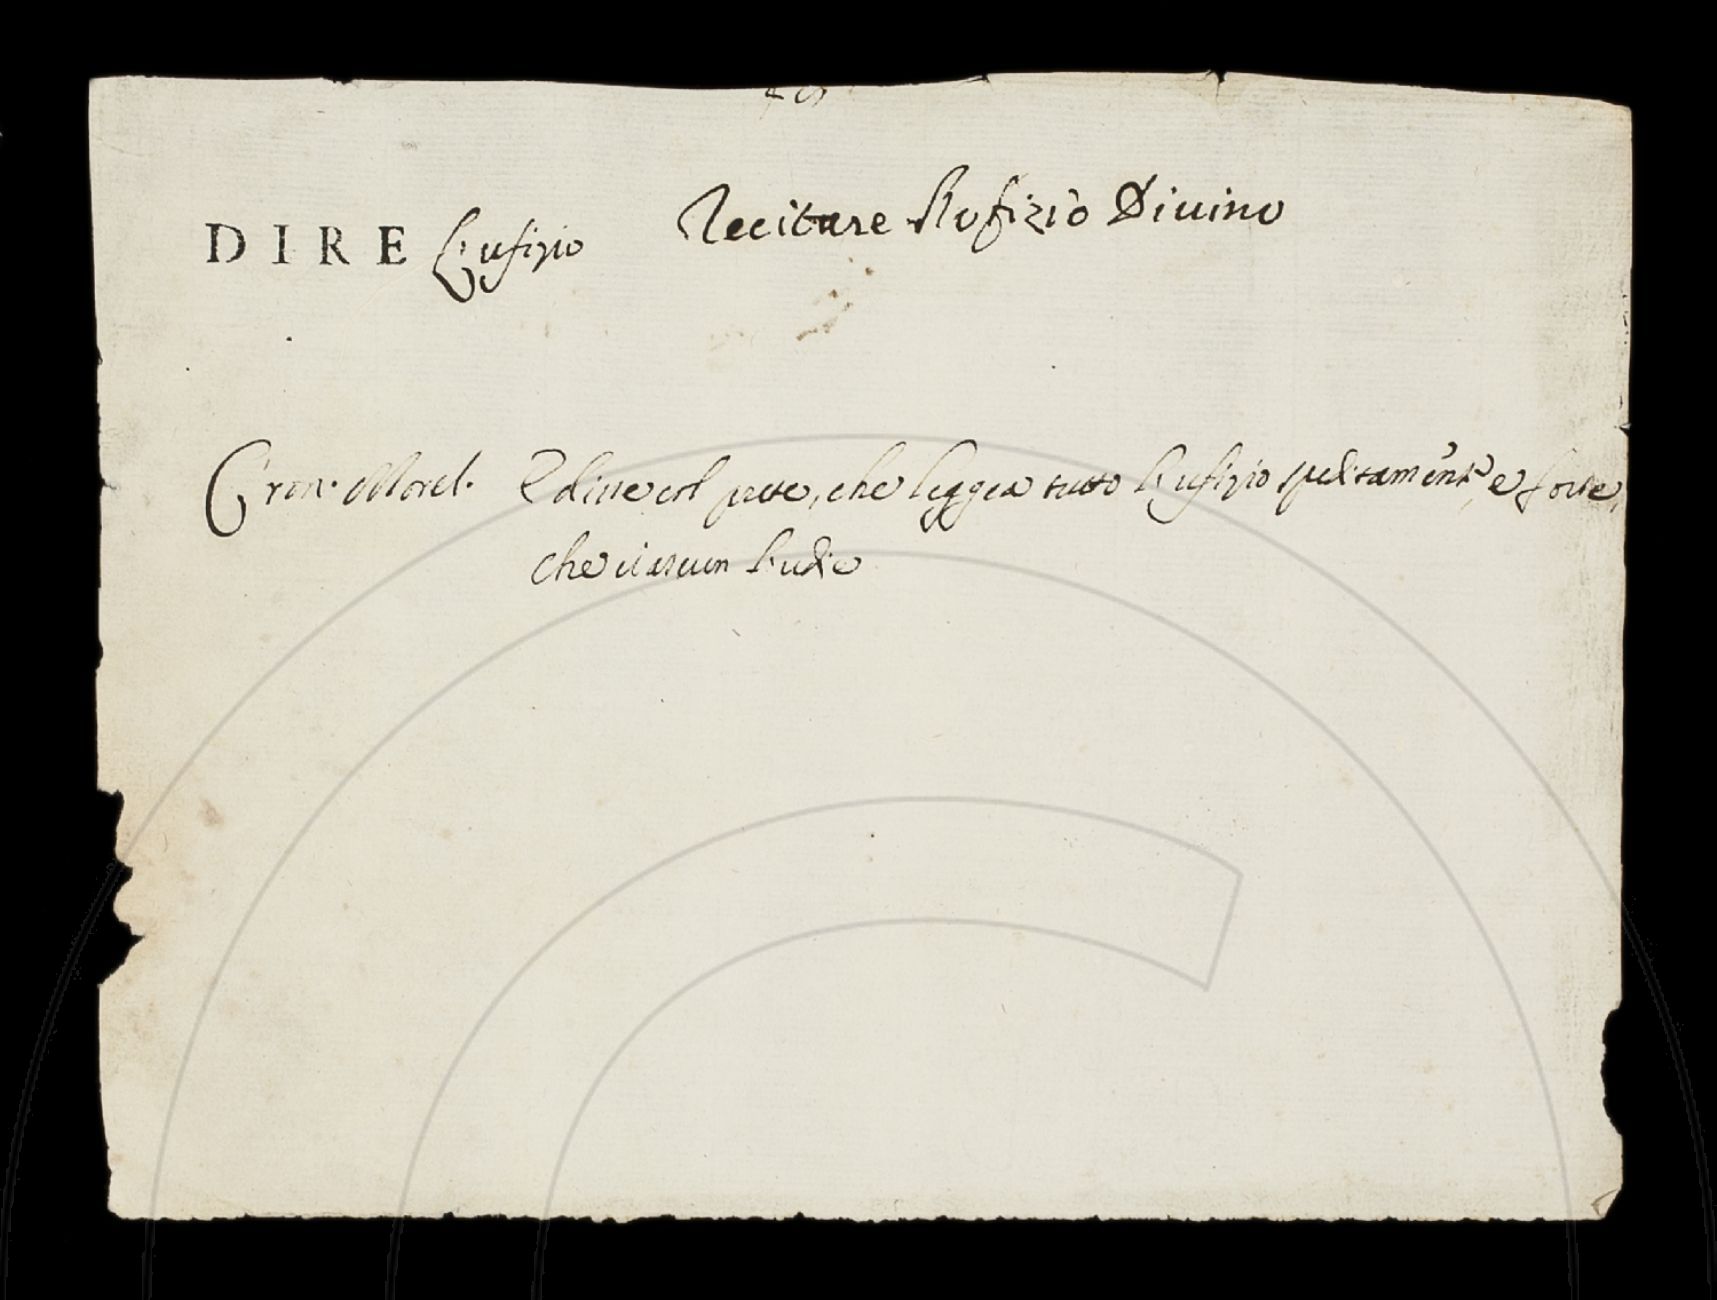 DIRE L'ufizio Recitare l'Vofizio Diuino
Cron. Morel. E disse col prete, che leggea tutto l'ufizio speditamente, e forte,
che ciascun l'udie